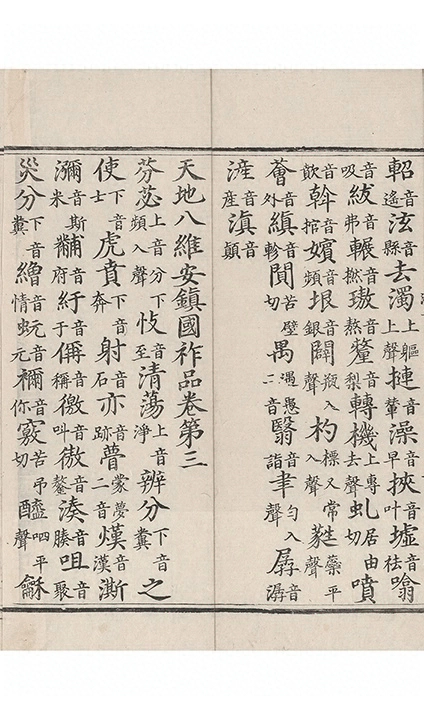 軺音遙泫音縣去濁上聲上軀摙音輦澡音早挾音叶墟音祛噏音
吸紱音弗輾音撚璈音熬釐音梨轉上專去聲機虬居由切噴音
歕斡音捾嬪音頻垠音銀闢瓶入聲杓標又常入聲蕤藥平聲
薈音外縝音軫闃苦壁切禺遇愚二音翳音詣聿勻入聲孱音潺
滻音產滇音顛
天地八維安鎮國祚品卷第三
芬上音分苾頻入聲忮下音至清蕩上音淨辨分下音糞之
使下音士虎賁下音奔射音石亦音跡瞢蒙夢二音熯音漢澌音斯
瀰音米黼音府紆音于偁音稱徼音叫徶音鼇湊音腠咀音聚
災分下音糞繒音情蚖音元禰音你竅苦弔切醯呬平聲龢